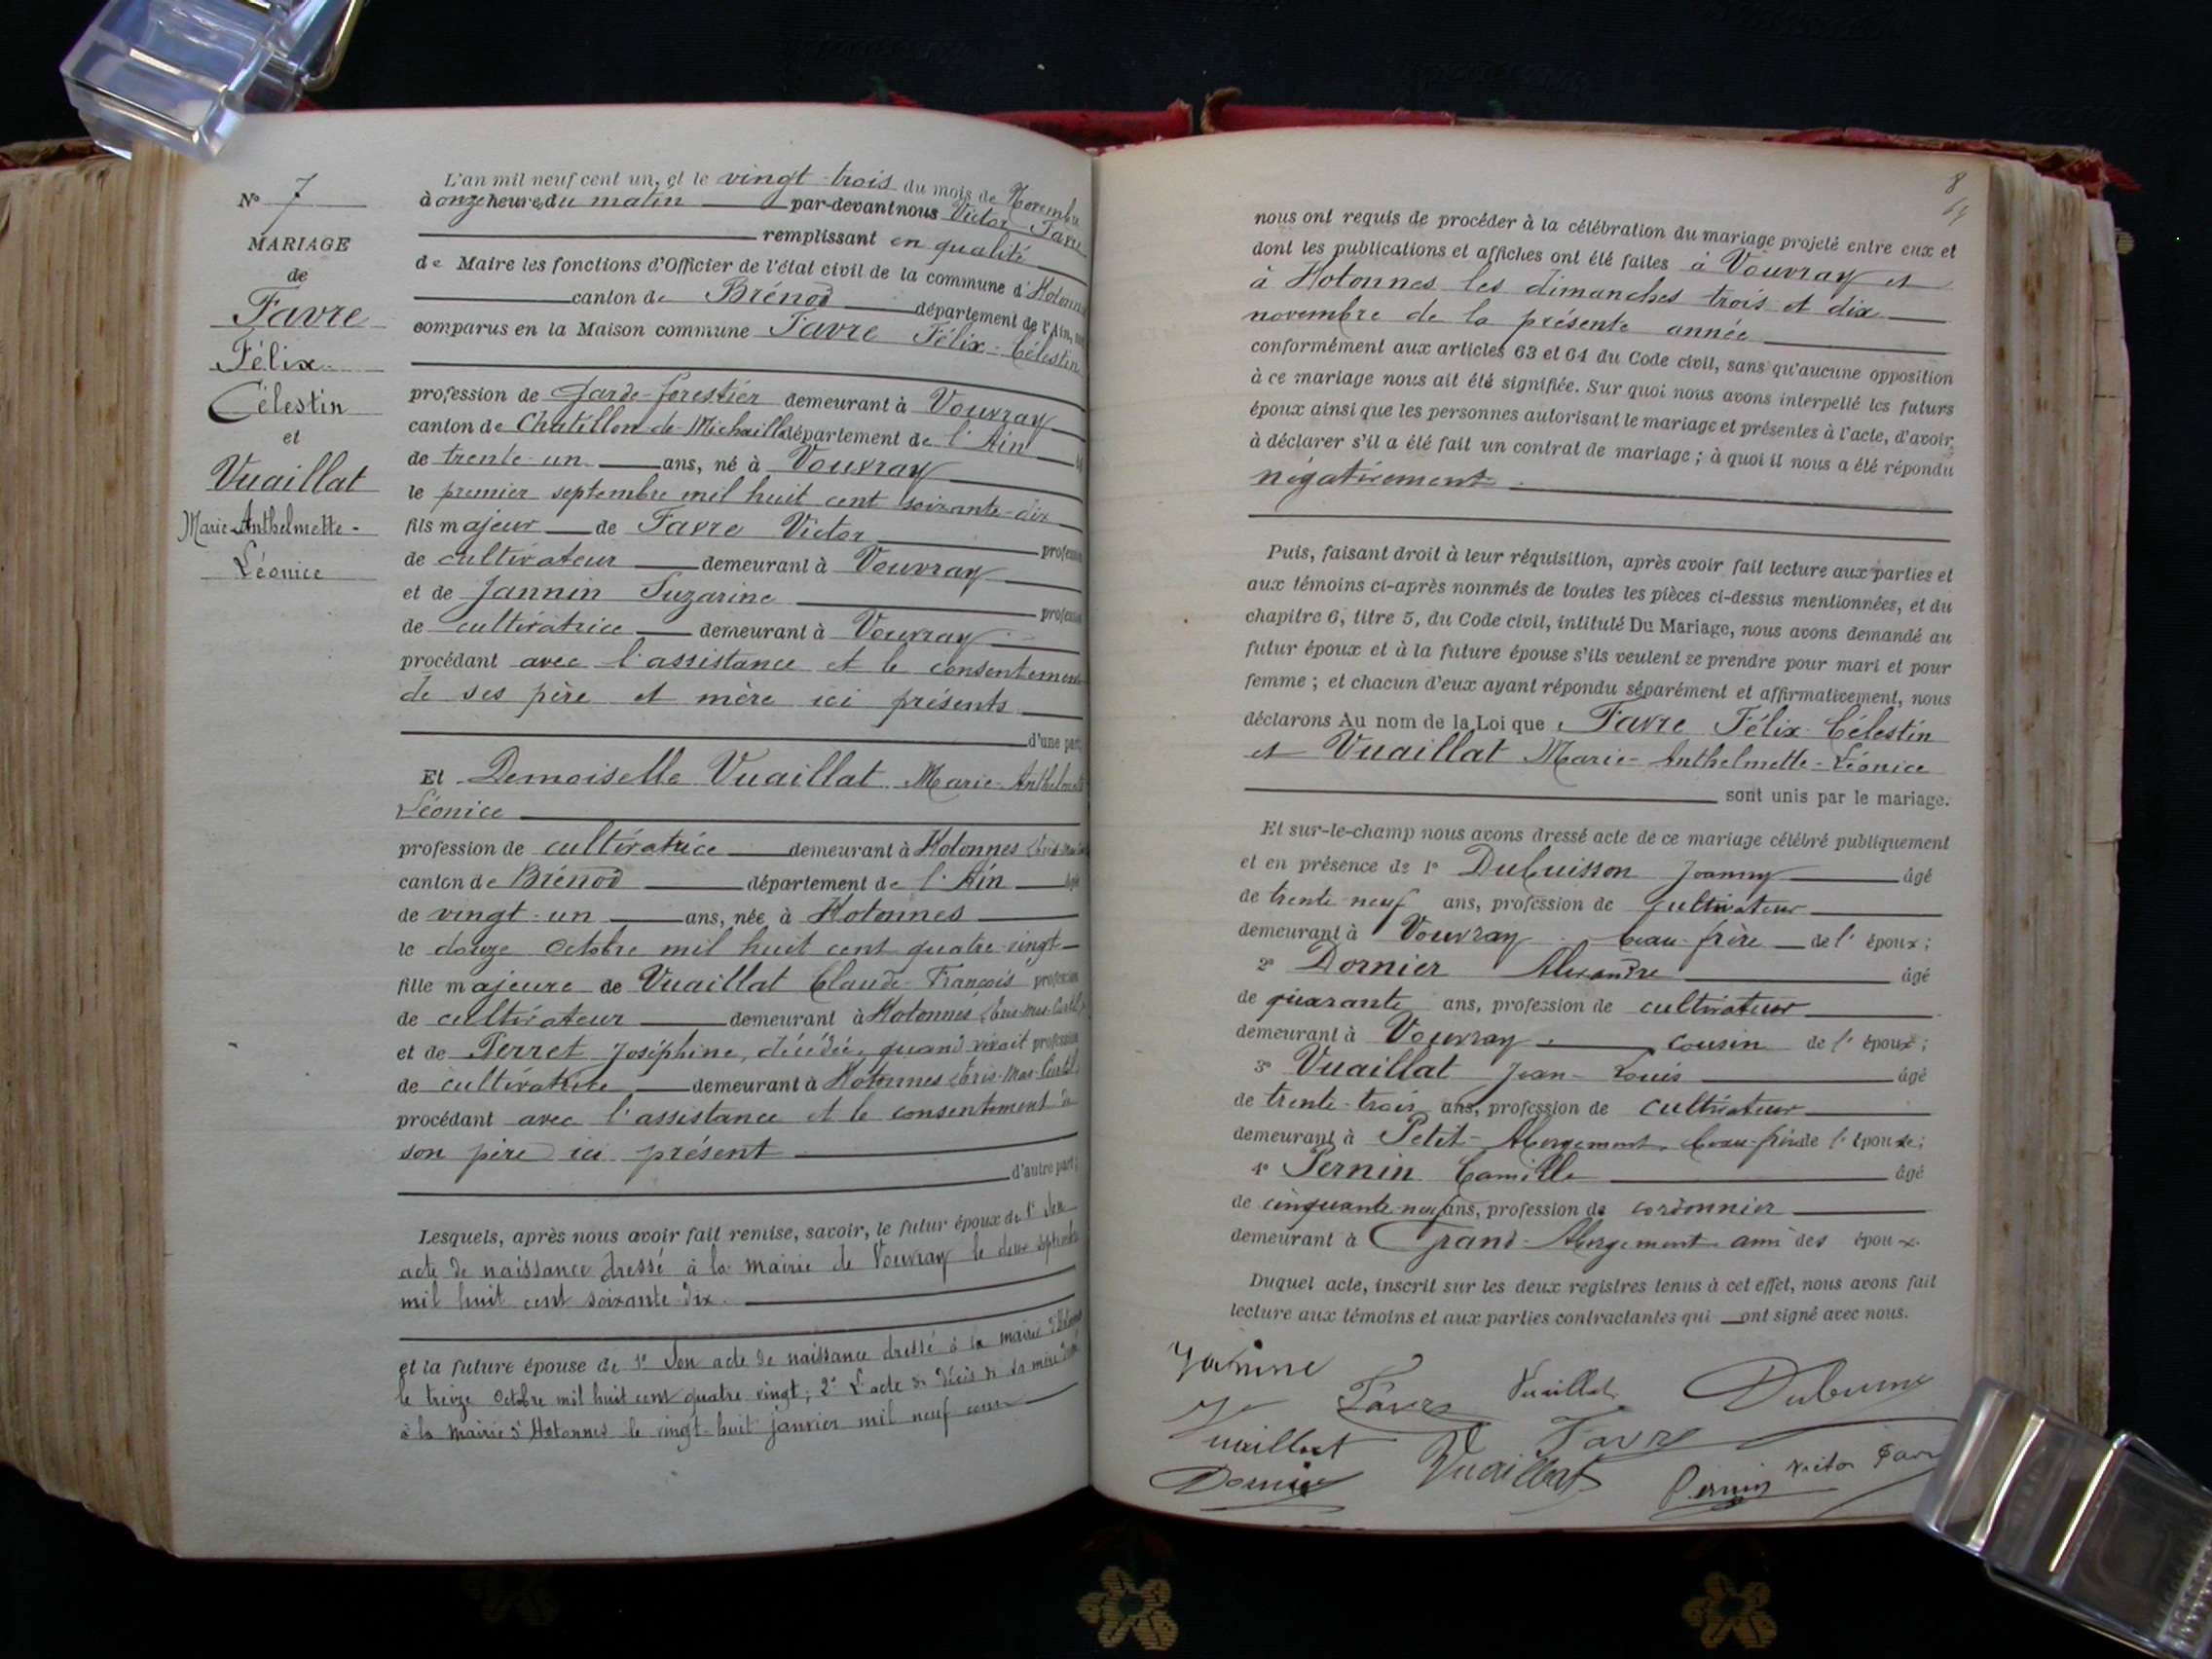 N° 7
MARIAGE
de
Favre
Félix
Célestin
et
Vuaillat
Marie-Anthelmette-
Léonice
L'an mil neuf cent un, et le vingt-trois du mois de Novembre
à onze heures du matin par-devant nous Victor Favre
remplissant en qualité
de Maire les fonctions d'Officier de l'état civil de la commune d'Hotonnes
canton de Brénod département de l'Ain,
comparus en la Maison commune Favre Félix-Célestin
profession de Garde-forestier demeurant à Vouvray
canton de Chatillon-de-Michaille département de l'Ain
de trente-un ans, né à Vouvray
le premier septembre mil huit cent soixante-dix
fils majeur de Favre Victor profession
de cultivateur demeurant à Vouvray
et de Jannin Suzarine profession
de cultivatrice demeurant à Vouvray
procédant avec l'assistance et le consentement
de ses père et mère ici présents
d'une part
Et Demoiselle Vuaillat Marie-Anthelmette
Léonice
profession de cultivatrice demeurant à Hotonnes
canton de Brénod département de l'Ain
de vingt-un ans, née à Hotonnes
le douze Octobre mil huit cent quatre-vingt
fille majeure de Vuaillat Claude-François profession
de cultivateur demeurant à Hotonnes
et de Perret Joséphine, décédée, quand vivait profession
de cultivatrice demeurant à Hotonnes
procédant avec l'assistance et le consentement de
son père ici présent
d'autre part;
Lesquels, après nous avoir fait remise, savoir, le futur époux de 1° Son
acte de naissance dressé à la mairie de Vouvray le deux septembre
mil huit cent soixante-dix.
et la future épouse de 1° Son acte de naissance dressé à la mairie d'Hotonnes
le treize Octobre mil huit cent quatre vingt; 2° L'acte de décès de sa mère dressé
à la mairie d'Hotonnes le vingt-huit janvier mil neuf cent
8
nous ont requis de procéder à la célébration du mariage projeté entre eux et
dont les publications et affiches ont été faites à Vouvray et
à Hotonnes les dimanches trois et dix
novembre de la présente année
conformément aux articles 63 et 64 du Code civil, sans qu'aucune opposition
à ce mariage nous ait été signifiée. Sur quoi nous avons interpellé les futurs
époux ainsi que les personnes autorisant le mariage et présentes à l'acte, d'avoir
à déclarer s'il a été fait un contrat de mariage; à quoi il nous a été répondu
négativement.
Puis, faisant droit à leur réquisition, après avoir fait lecture aux parties et
aux témoins ci-après nommés de toutes les pièces ci-dessus mentionnées, et du
chapitre 6, titre 5, du Code civil, intitulé Du Mariage, nous avons demandé au
futur époux et à la future épouse s'ils veulent se prendre pour mari et pour
femme; et chacun d'eux ayant répondu séparément et affirmativement, nous
déclarons Au nom de la Loi que Favre Félix-Célestin
et Vuaillat Marie-Anthelmette-Léonice
sont unis par le mariage.
Et sur-le-champ nous avons dressé acte de ce mariage célébré publiquement
et en présence de 1° Dubuisson Joanny âgé
de trente-neuf ans, profession de cultivateur
demeurant à Vouvray beau-frère de l'époux;
2° Dornier Alexandre âgé
de quarante ans, profession de cultivateur
demeurant à Vouvray cousin de l'époux;
3° Vuaillat Jean-Louis âgé
de trente-trois ans, profession de cultivateur
demeurant à Petit-Abergement, beau-frère de l'épouse;
4° Pernin Camille âgé
de cinquante-neuf ans, profession de cordonnier
demeurant à Grand-Abergement ami des époux.
Duquel acte, inscrit sur les deux registres tenus à cet effet, nous avons fait
lecture aux témoins et aux parties contractantes qui ont signé avec nous.
Janine
Favre Vuaillat
Vuaillat Favre
Dornier Vuaillat Pernin Victor Favre